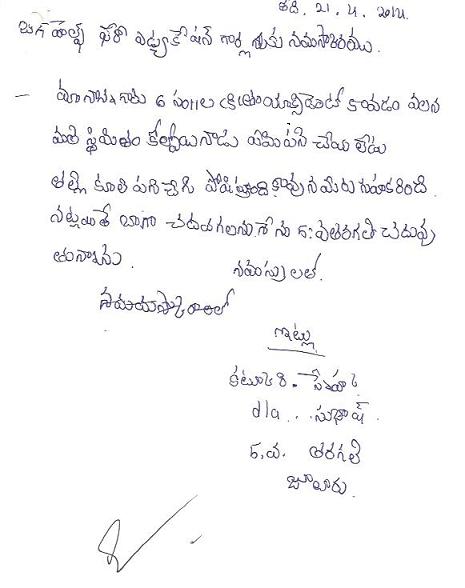 తేది. 21. 4. 2014.
బిగ్ హెల్ప్ ఫర్ ఎడ్యుకేషన్ గార్ల శుకు నమస్కారము.
– మా నాన్నగారు 6 సం॥ల క్రితం యాక్సిడెంట్ కావడం వలన
మతి స్థిమితం కోల్పోయినాడు ఏమి పని చేయలేడు
తల్లి కూలి పని చేసి పోషిస్తుంది కావున మీరు సహకరించి
నట్లయితే బాగా చదువగలను. నేను 5వ తరగతి చదువు
తున్నాను. నమస్సులతో.
గాట్లు
కటూరి.
d/o . . సుభాష్.
5.వ. తరగతి